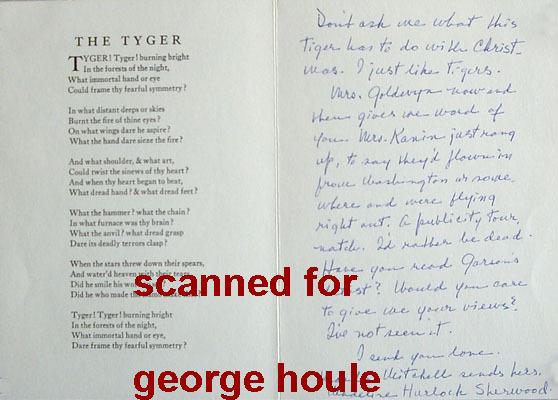 THE TYGER
TYGER! Tyger! burning bright
In the forests of the night,
What immortal hand or eye
Could frame thy fearful symmetry?
In what distant deeps or skies
Burnt the fire of thine eyes?
On what wings dare he aspire?
What the hand dare sieze the fire?
And what shoulder, & what art,
Could twist the sinews of thy heart?
And when thy heart began to beat,
What dread hand? & what dread feet?
What the hammer? what the chain?
In what furnace was thy brain?
What the anvil? what dread grasp
Dare its deadly terrors clasp?
When the stars threw down their spears,
And water'd heaven with their tears,
Did he smile his
Did he who made
Tyger! Tyger! burning bright
In the forests of the night,
What immortal hand or eye,
Dare frame thy fearful symmetry?
Don't ask me what this
tiger has to do with Christ-
mas. I just like tigers.
Mrs. Goldwyn now and
then gives me word of
you. Mrs. Kanin just rang
up, to say they'd flown in
from Washington or some
where and were flying
right out. A publicity tour,
natch. I'd rather be dead.
Have you read Garson's
Would you care
to give me your views?
I've not seen it.
I send you love.
Mitchell sends hers.
Madeline Hurlock Sherwood.
scanned for
george houle